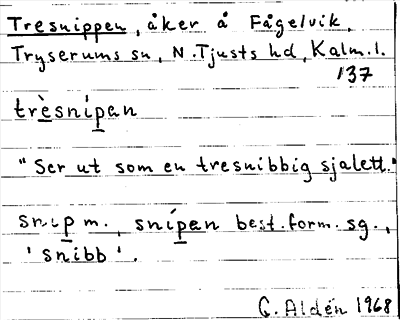 Tresnippen, åker å Fågelvik,
Tryserums sn, N. Tjusts hd, Kalm. l.
137
trèsnípan
"Ser ut som en tresnibbig sjalett."
snip m., snípen best. form. sg.,
'snibb'.
G. Aldén 1968